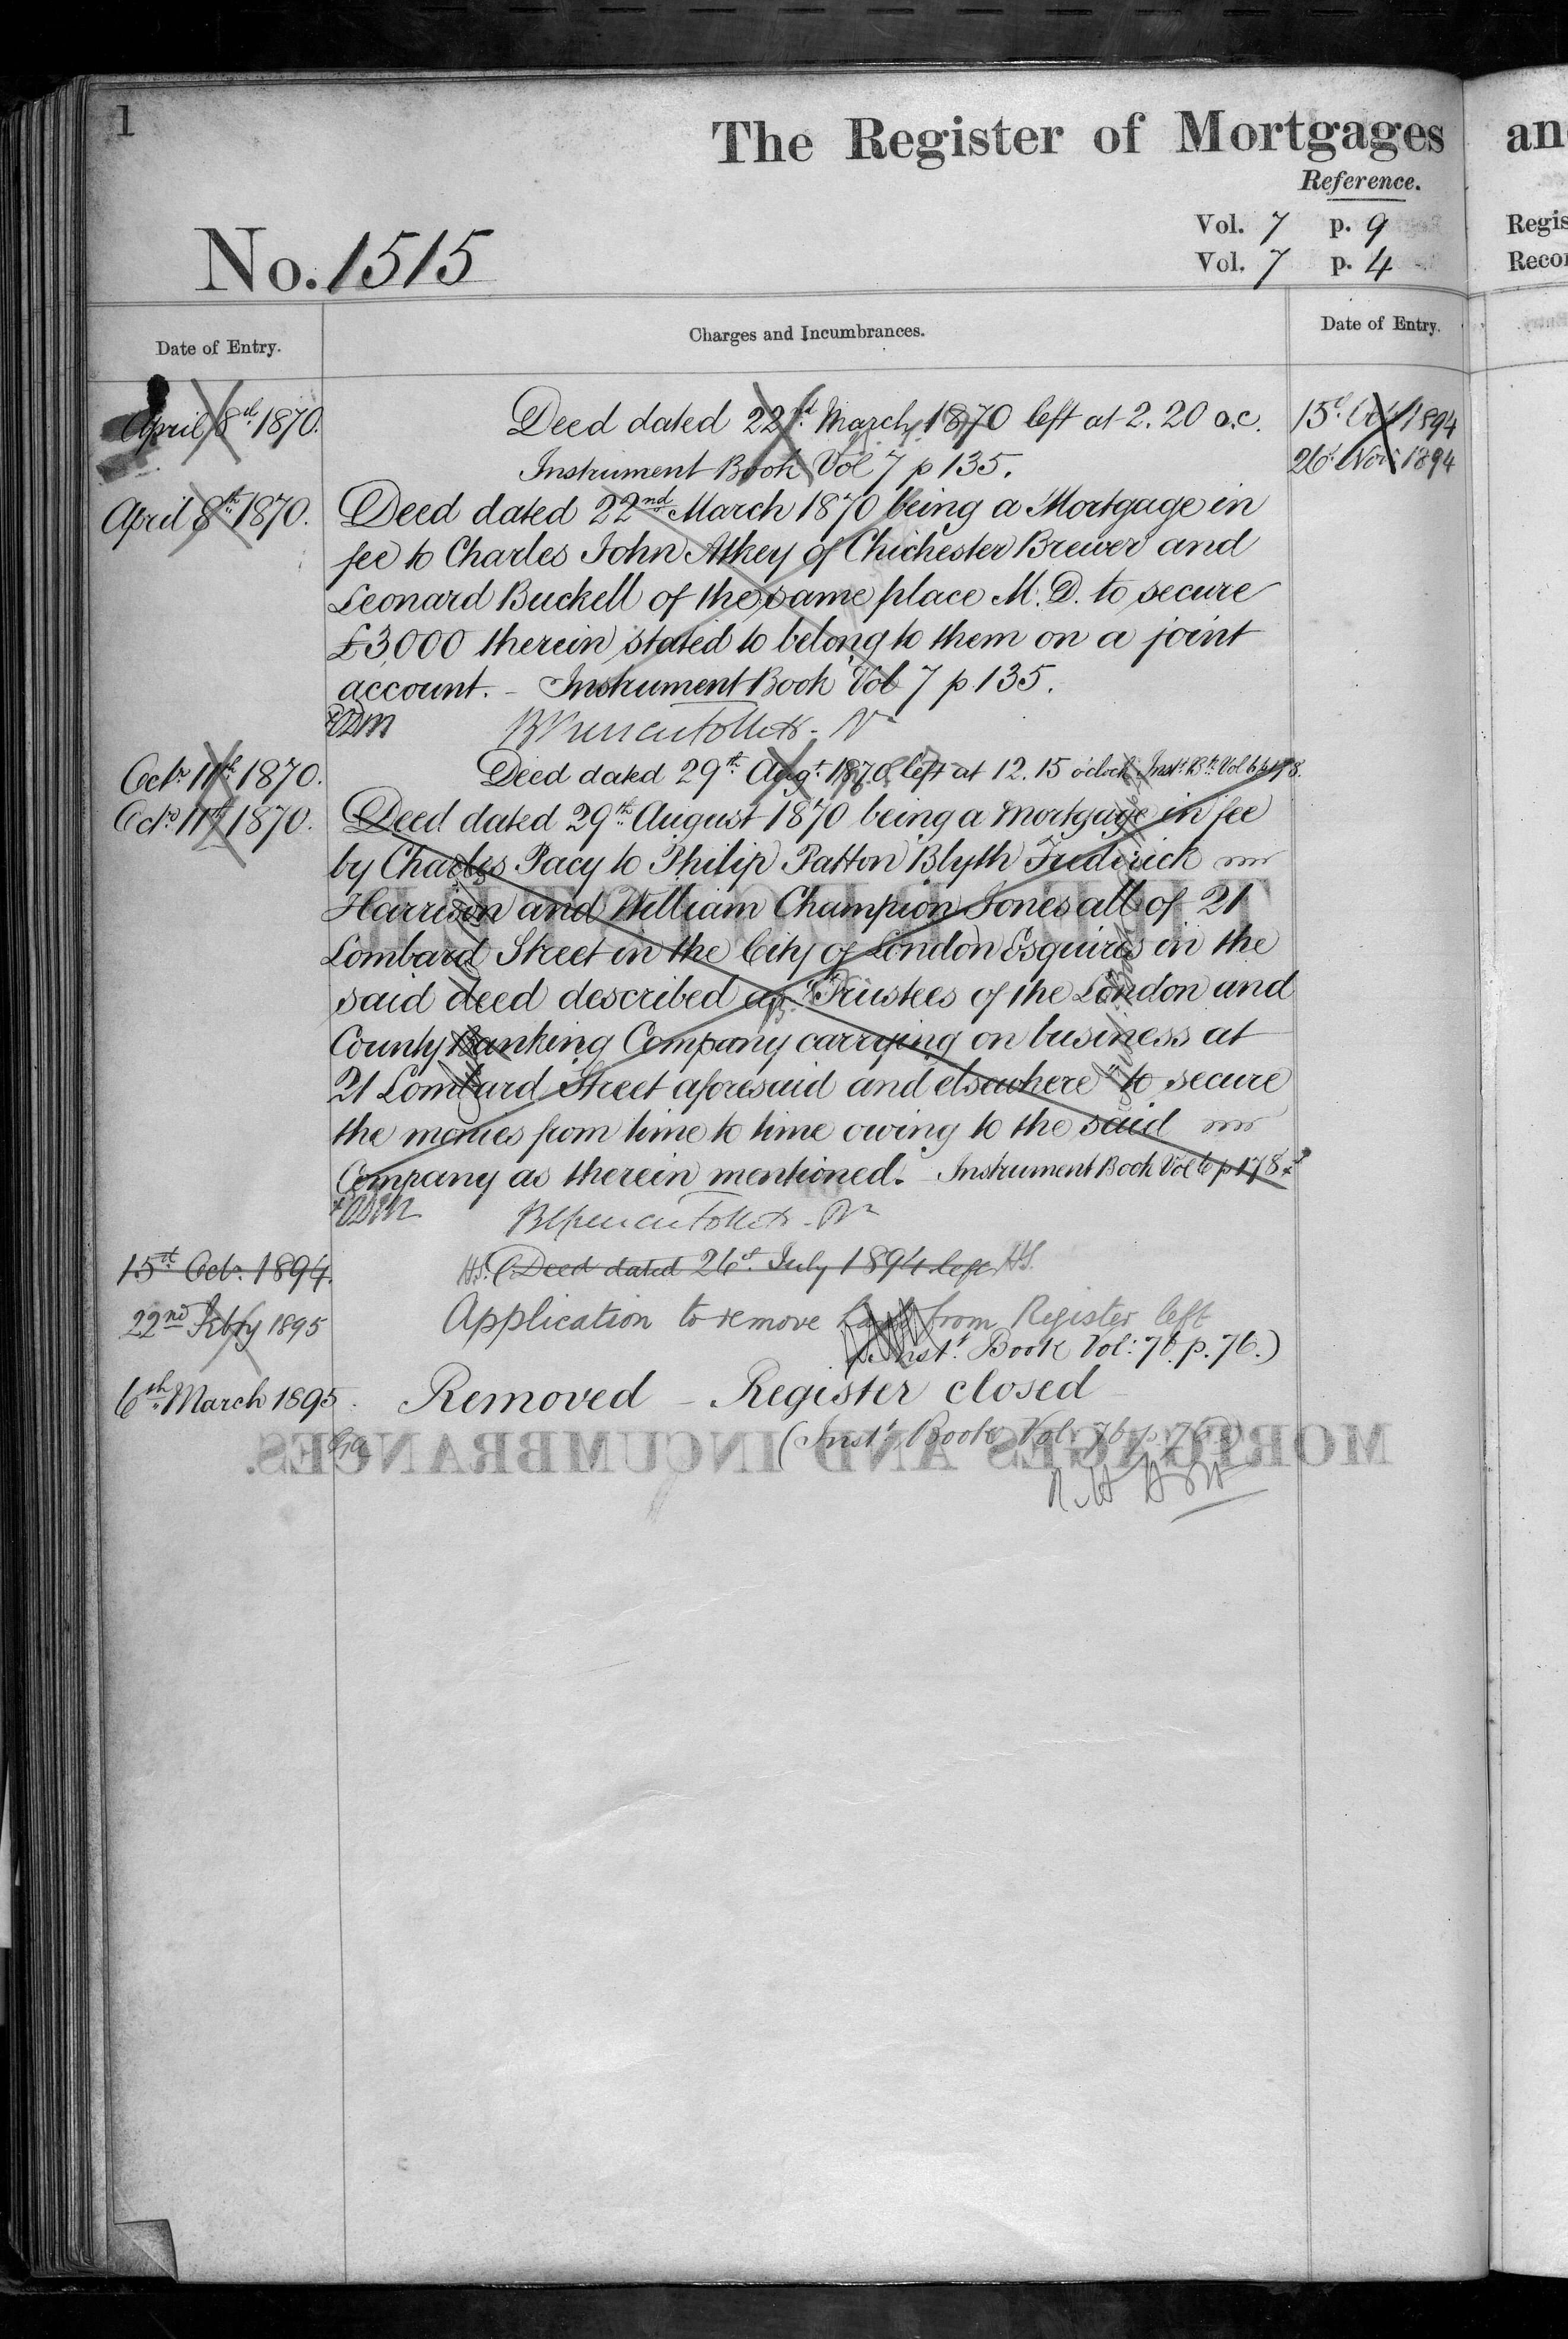 1
The Register of Mortgages an
Reference.
Vol. 7 p. 9 Regis
Vol. 7 p. 4 Recor
No. 1515
Date of Entry. Charges and Incumbrances. Date of Entry.
April 8th 1870. Deed dated 22d March 1870 left at 2.20 o.c. 15th Oct 1894
Instrument Book Vol 7 p 135. 26th Nov 1894
April 8th 1870. Deed dated 22nd March 1870 being a Mortgage in
fee to Charles John Atkey of Chichester Brewer and
Leonard Buckell of the same place M. D. to secure
£3,000 therein stated to belong to them on a joint
account. - Instrument Book Vol 7 p 135.
Octr 11th 1870. Deed dated 29th Augt 1870 left at 12.15 o'clock Inst: Bk Vol 6 p 178.
Octr 11th 1870. Deed dated 29th August 1870 being a Mortgage in fee
by Charles Pacy to Philip Patton Blyth Frederick
Harrison and William Champion Jones all of 21
Lombard Street in the City of London Esquires in the
said deed described as "Trustees of the London and
County Banking Company carrying on business at
21 Lombard Street aforesaid and elsewhere" to secure
the monies from time to time owing to the said
Company as therein mentioned. - Instrument Book Vol 6 p 178
15th Octr 1894. H.S. (Deed dated 26th July 1894 left H.S.
22nd Febry 1895 Application to remove Land from Register left
Inst. Book Vol: 76. p. 76.)
6th March 1895. Removed - Register closed -
(Inst. Book Vol: 76 p. 76)
MORTGAGES AND INCUMBRANCES.